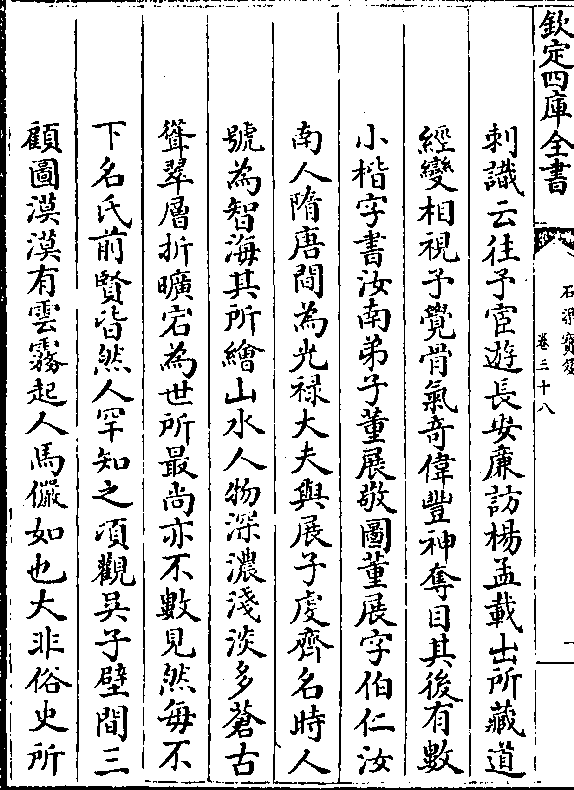 欽定四庫全書
石渠寶笈
卷三十八
刺識云往予宦遊長安廉訪楊孟載出所藏道
經變相視予覺骨氣奇偉豐神奪目其後有數
小楷字書汝南弟子董展敬圖董展字伯仁汝
南人隋唐間為光禄大夫與展子虔齊名時人
號為智海其所繪山水人物深濃淺淡多蒼古
聳翠層折曠宕為世所最尚亦不數見然每不
下名氏前賢皆然人罕知之項觀吳子壁間三
顧圖漠漠有雲霧起人馬儼如也大非俗史所